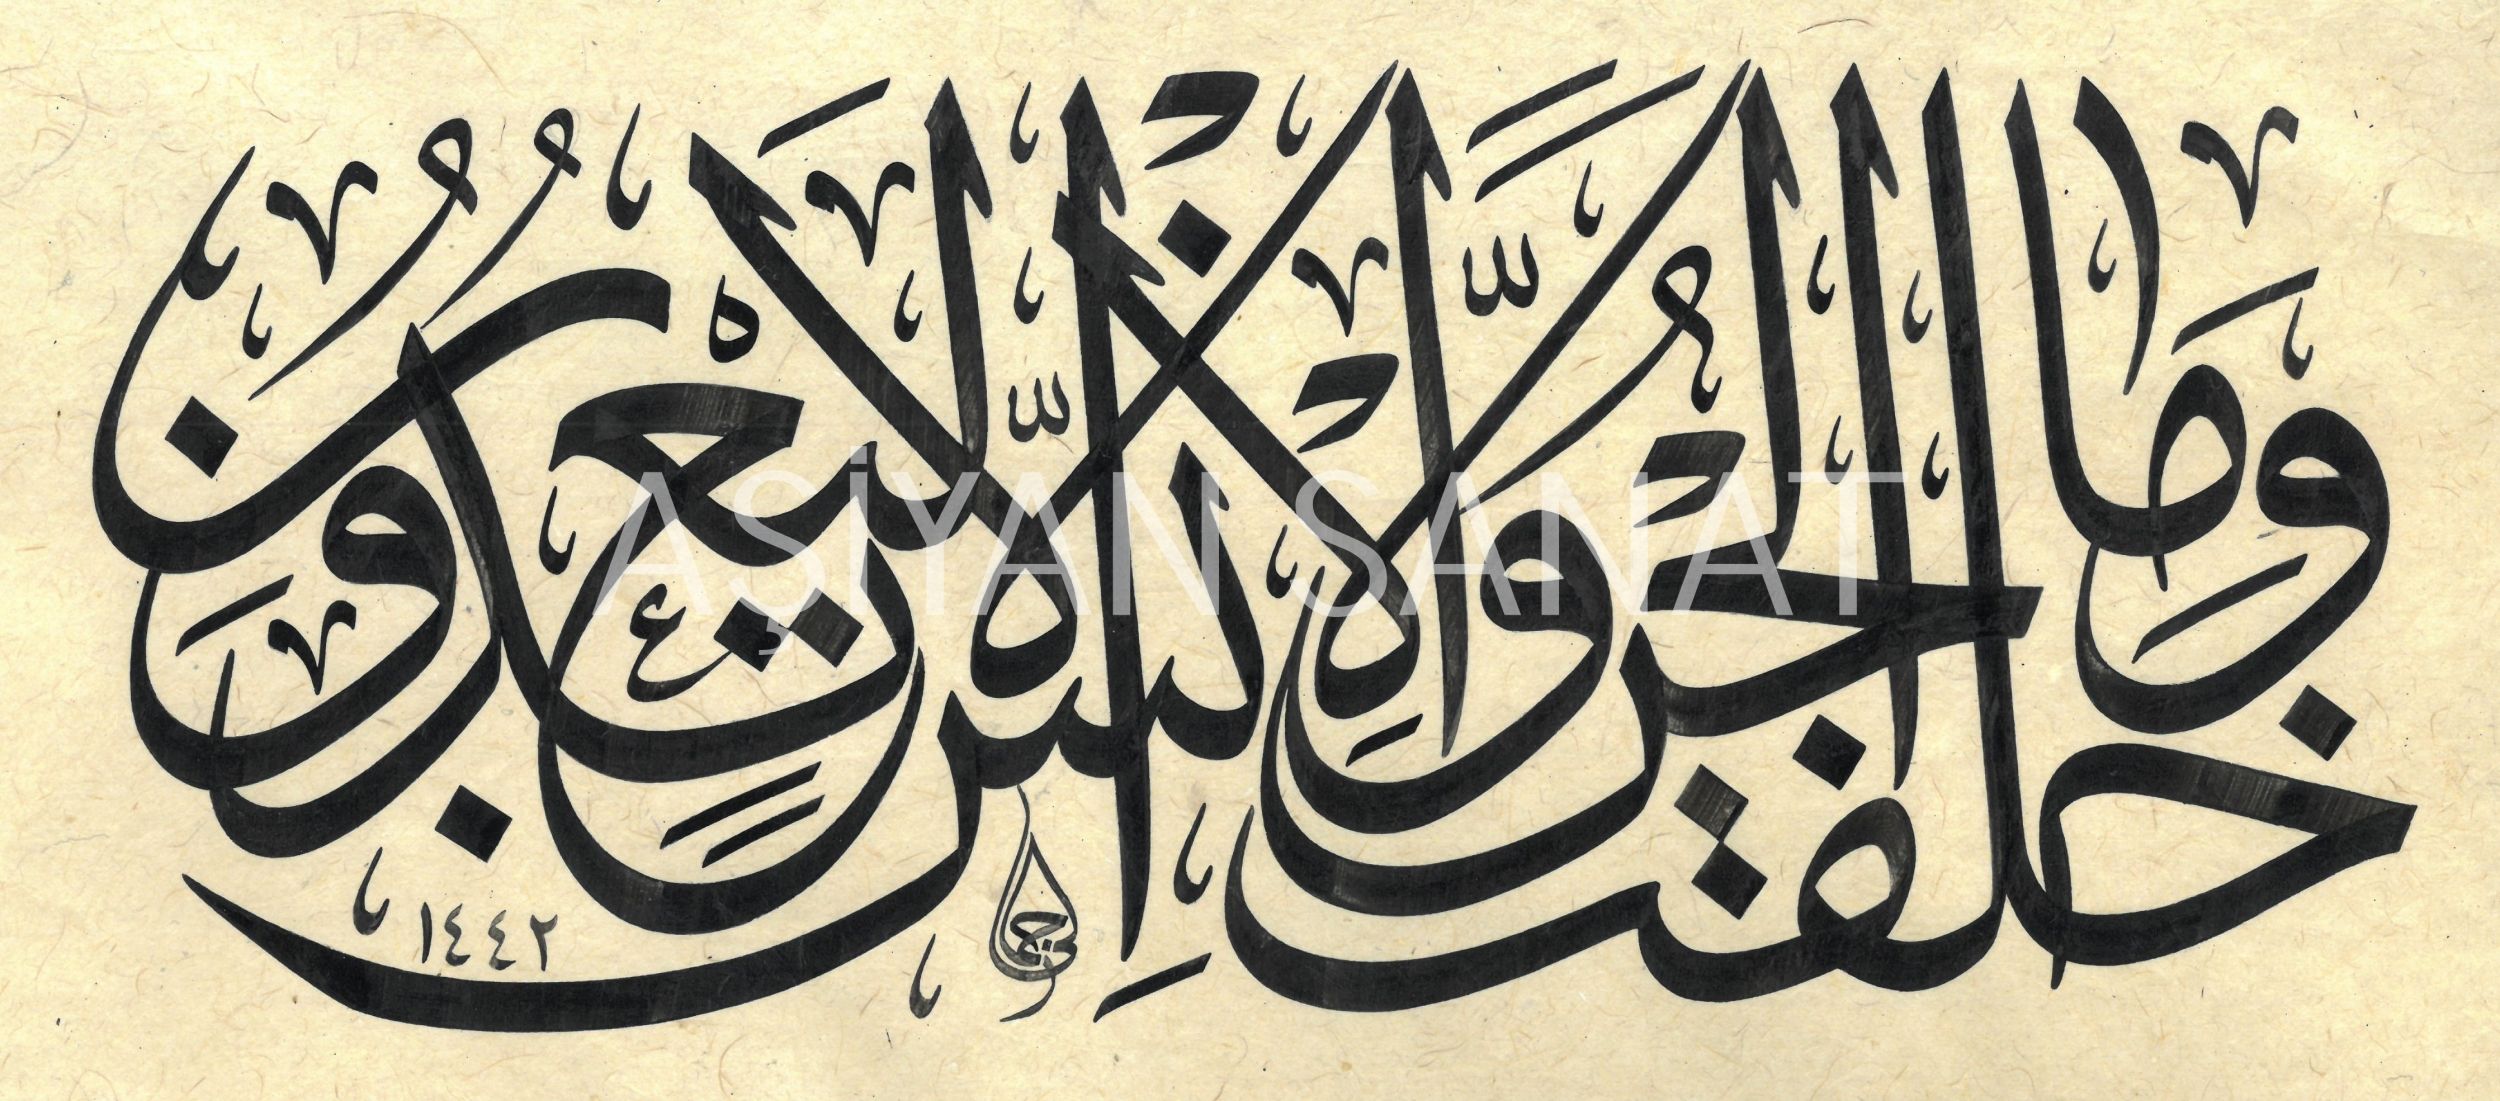 وَمَا خَلَقْتُ الْجِنَّ وَالْإِنْسَ إِلَّا لِيَعْبُدُونِ
١٤٤٢
AŞİYAN SANAT